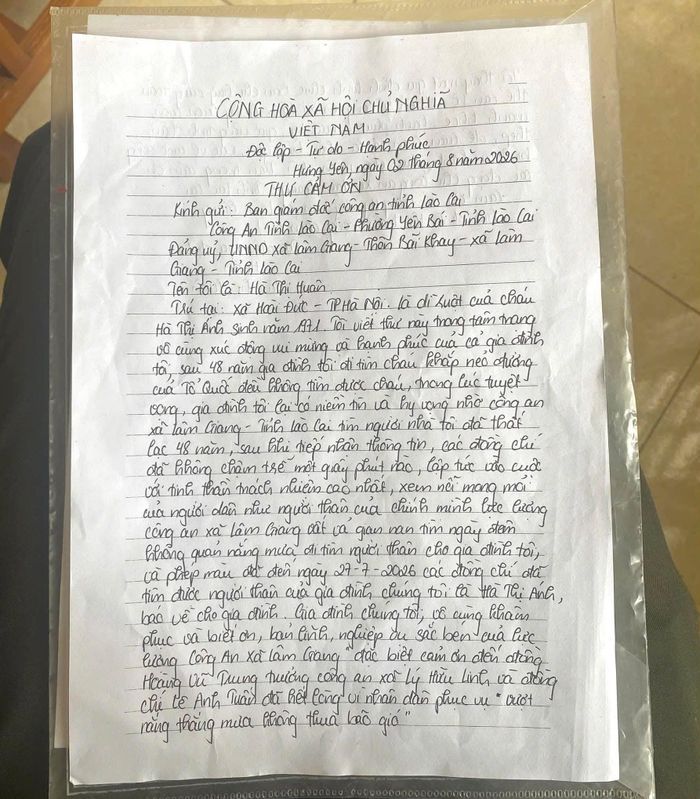 CỘNG HOA XÃ HỘI CHỦ NGHĨA
VIỆT NAM
Độc lập - Tự do - Hạnh phúc
Hưng Yên, ngày 02 tháng 8 năm 2026
THƯ CẢM ƠN
Kính gửi: Ban giám đốc công an tỉnh Lào Cai
Công An Tỉnh Lào Cai - Phường Yên Bái - Tỉnh Lào Cai
Đảng uỷ, UNND xã Lâm Giang - Thôn Bãi Khay - xã Lâm
Giang - Tỉnh Lào Cai
Tên tôi là: Hà Thị Huân
Trú tại: xã Hoài Đức - TP Hà Nội. là dì ruột của cháu
Hà Thị Ánh sinh năm 1971. Tôi viết thư này trong tâm trạng
vô cùng xúc động vui mừng và hạnh phúc của cả gia đình
tôi, sau 48 năm gia đình tôi đi tìm cháu khắp nẻo đường
của Tổ Quốc đều không tìm được cháu, trong lúc tuyệt
vọng, gia đình tôi lại có niềm tin và hy vọng nhờ công an
xã Lâm Giang - Tỉnh Lào Cai tìm người nhà tôi đã thất
lạc 48 năm, sau khi tiếp nhận thông tin, các đồng chí
đã không chậm trễ một giây phút nào, lập tức vào cuộc
với tinh thần trách nhiệm cao nhất, xem nỗi mong mỏi
của người dân như người thân của chính mình lực lượng
công an xã Lâm Giang vất vả gian nan tìm ngày đêm
không quản nắng mưa đi tìm người thân cho gia đình tôi,
và phép màu đã đến ngày 27-7-2026 các đồng chí đã
tìm được người thân của gia đình chúng tôi là Hà Thị Ánh,
báo về cho gia đình. Gia đình chúng tôi, vô cùng khâm
phục và biết ơn, bản lĩnh, nghiệp vụ sắc bén của lực
lượng Công An Xã Lâm Giang "đặc biệt cảm ơn đến đồng
Hoàng Vũ Trung trưởng công an xã Lý Hữu Linh, và đồng
chí Lê Anh Tuấn đã hết lòng vì nhân dân phục vụ "vượt
nắng thắng mưa không thua bão gió"